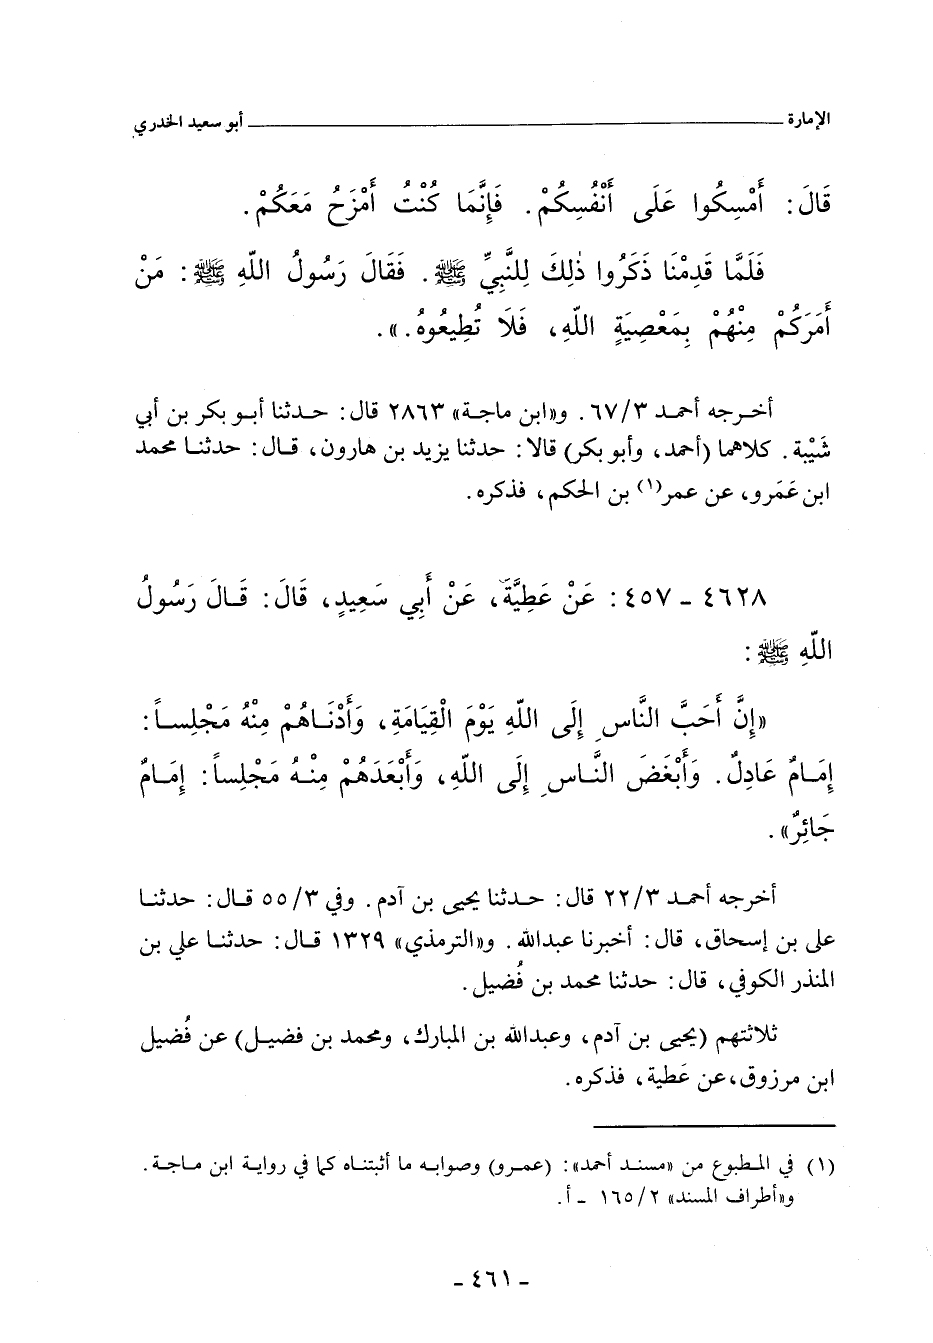 الإمارة ــــــــــــــ أبو سعيد الخدري
قَالَ: أَمْسِكُوا عَلَى أَنْفُسِكُمْ. فَإِنَّمَا كُنْتُ أَمْزَحُ مَعَكُمْ.
فَلَمَّا قَدِمْنَا ذَكَرُوا ذٰلِكَ لِلنَّبِيِّ ﷺ. فَقَالَ رَسُولُ اللّهِ ﷺ: مَنْ
أَمَرَكُمْ مِنْهُمْ بِمَعْصِيَةِ اللّهِ، فَلَا تُطِيعُوهُ.».
أخرجه أحمد ٦٧/٣. و«ابن ماجة» ٢٨٦٣ قال: حدثنا أبو بكر بن أبي
شَيْبة. كلاهما (أحمد، وأبو بكر) قالا: حدثنا يزيد بن هارون، قال: حدثنا محمد
ابن عَمَرو، عن عمر(١) بن الحكم، فذكره.
٤٦٢٨ - ٤٥٧: عَنْ عَطِيَّةَ، عَنْ أَبِي سَعِيدٍ، قَالَ: قَالَ رَسُولُ
اللّهِ ﷺ:
«إِنَّ أَحَبَّ النَّاسِ إِلَى اللّهِ يَوْمَ الْقِيَامَةِ، وَأَدْنَاهُمْ مِنْهُ مَجْلِساً:
إِمَامٌ عَادِلٌ. وَأَبْغَضَ النَّاسِ إِلَى اللّهِ، وَأَبْعَدَهُمْ مِنْهُ مَجْلِساً: إِمَامٌ
جَائِرٌ».
أخرجه أحمد ٢٢/٣ قال: حدثنا يحيى بن آدم. وفي ٥٥/٣ قال: حدثنا
على بن إسحاق، قال: أخبرنا عبدالله. و«الترمذي» ١٣٢٩ قال: حدثنا علي بن
المنذر الكوفي، قال: حدثنا محمد بن فُضيل.
ثلاثتهم (يحيى بن آدم، وعبدالله بن المبارك، ومحمد بن فضيل) عن فُضيل
ابن مرزوق، عن عَطية، فذكره.
(١) في المطبوع من «مسند أحمد»: (عمرو) وصوابه ما أثبتناه كما في رواية ابن ماجة.
و«أطراف المسند» ١٦٥/٢ - أ.
- ٤٦١ -